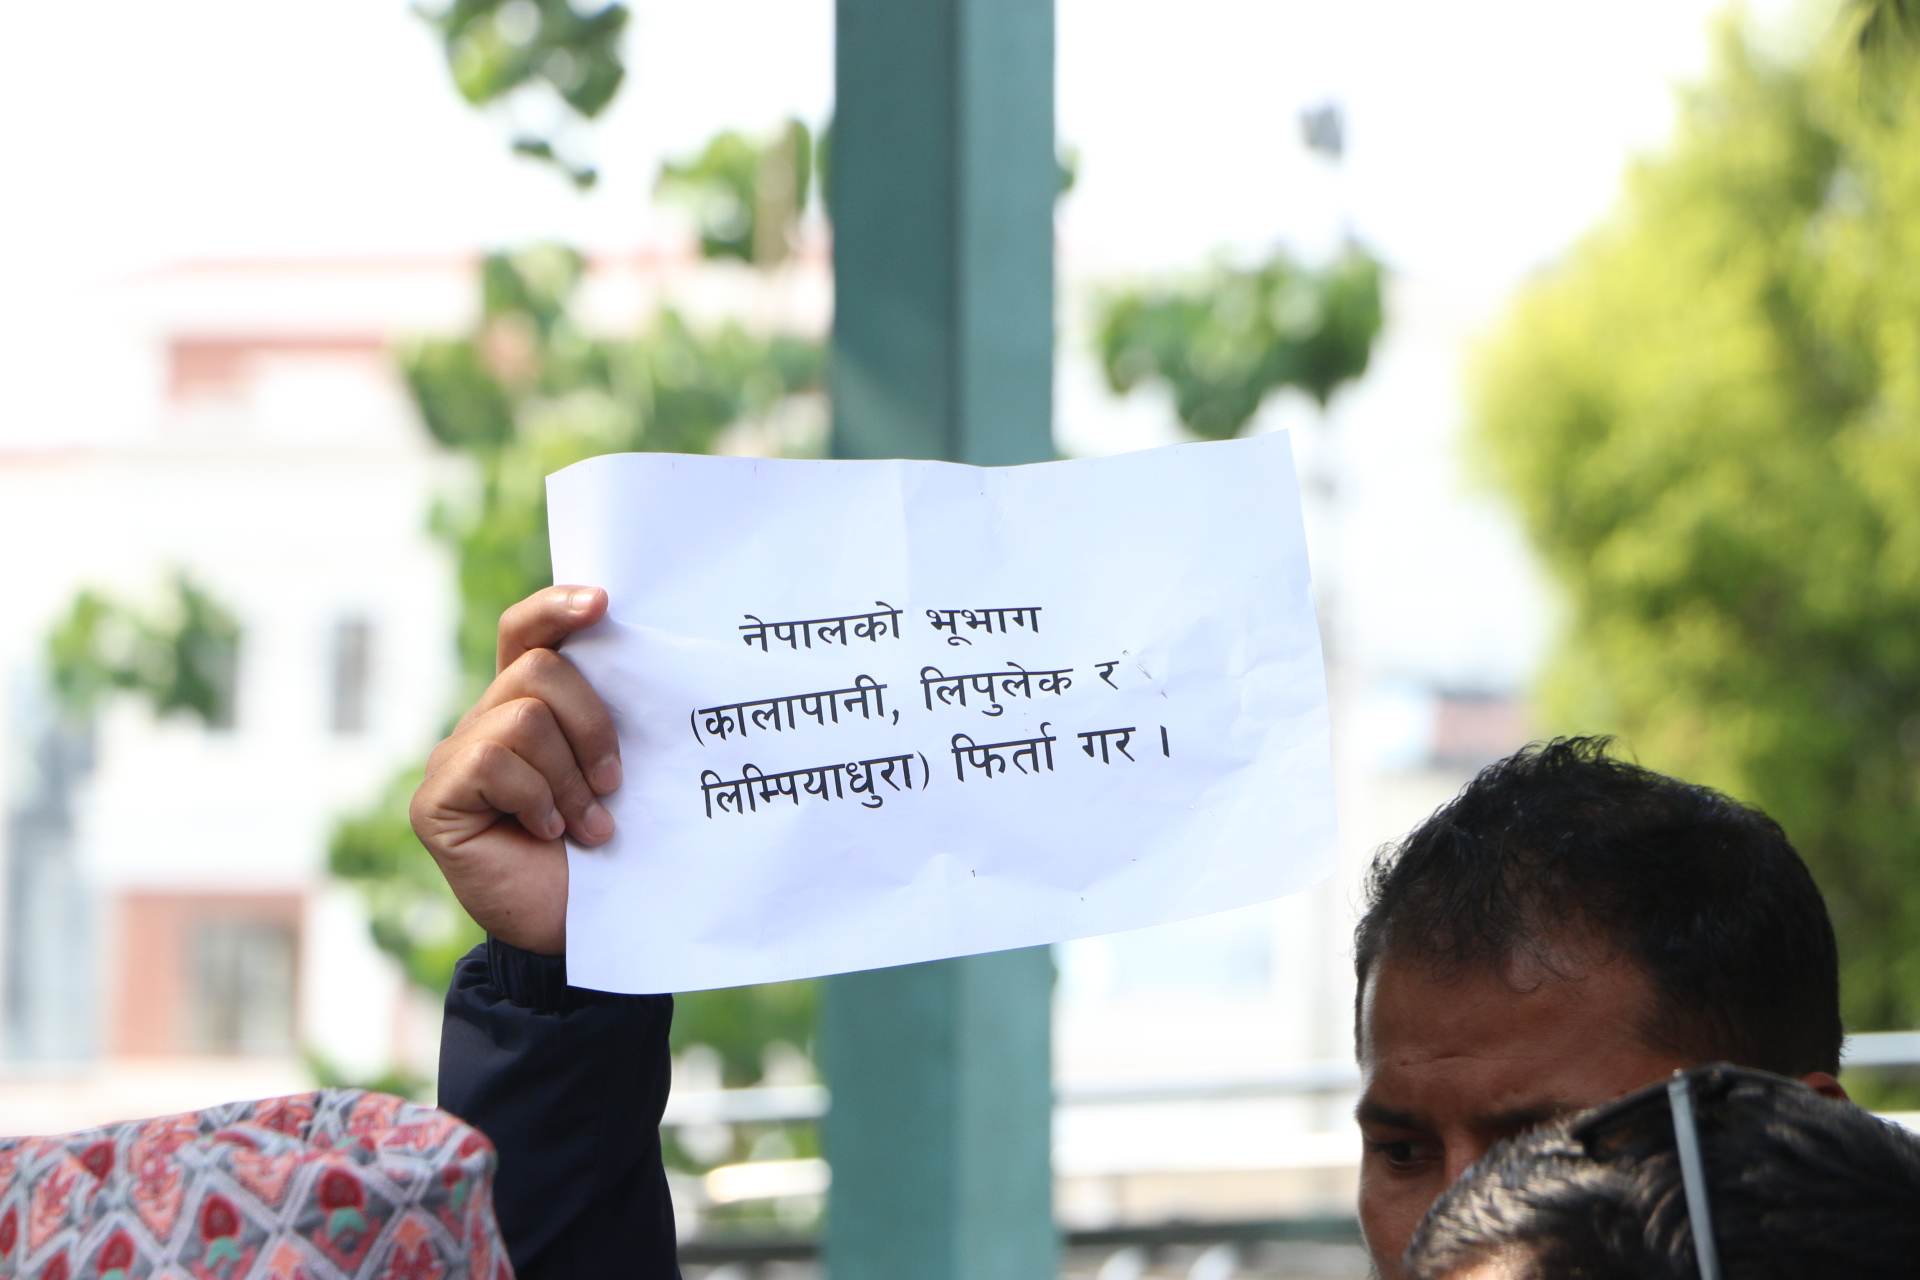 नेपालको भूभाग
(कालापानी, लिपुलेक र
लिम्पियाधुरा) फिर्ता गर ।